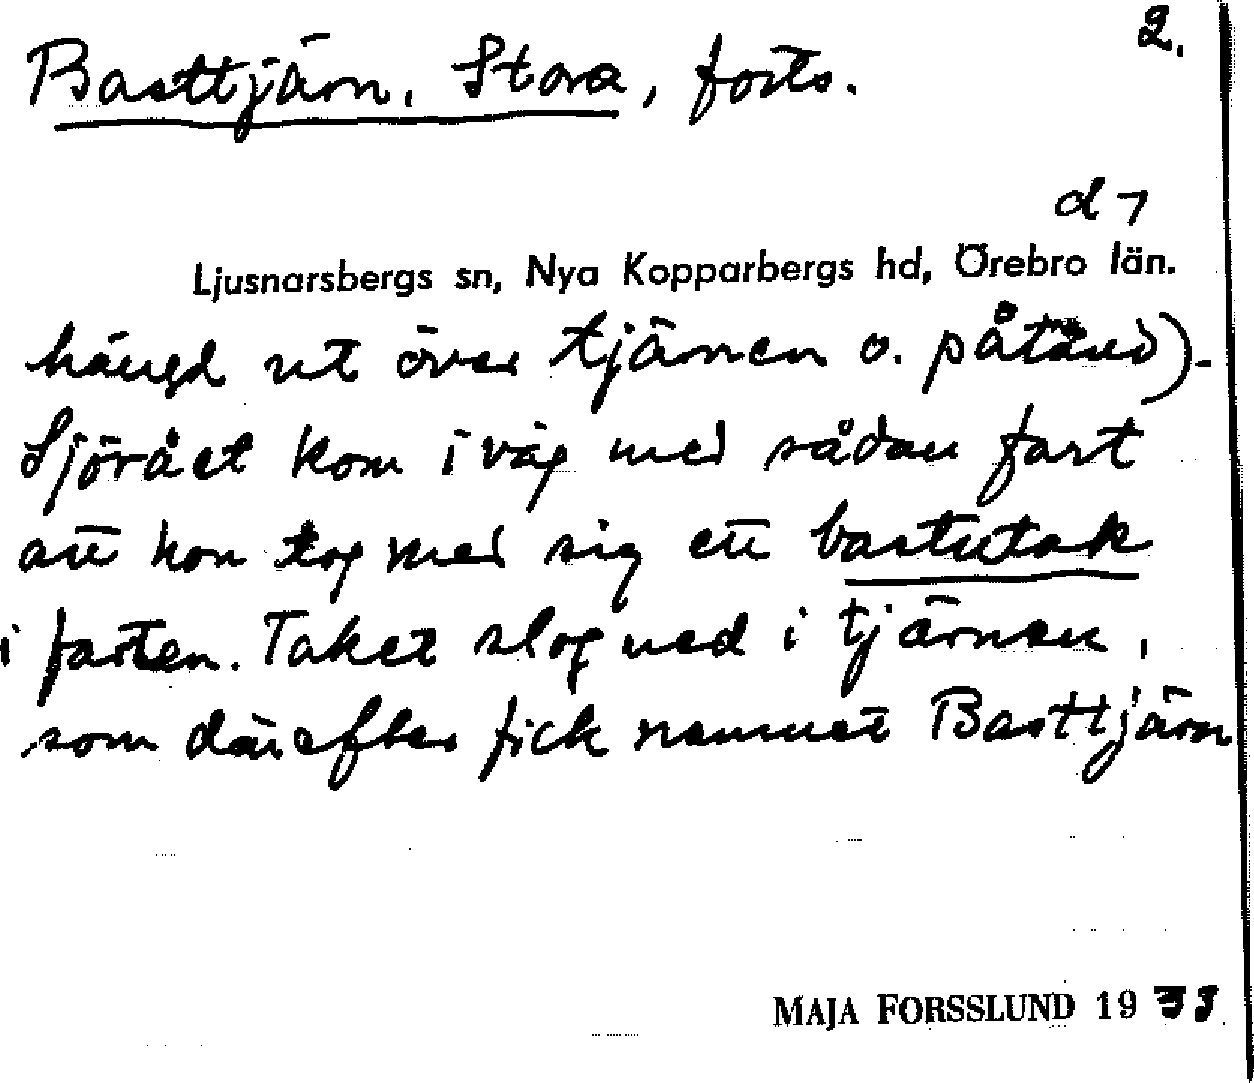 2.
Basttjärn, Stora, forts.
d 7
Ljusnarsbergs sn, Nya Kopparbergs hd, Örebro län.
hängd ut över tjärnen o. påtänd).
Sjörået kom iväg med sådan fart
att hon tog med sig ett bastutak
i farten. Taket slog ned i tjärnen,
som därefter fick namnet Basttjärn
MAJA FORSSLUND 19